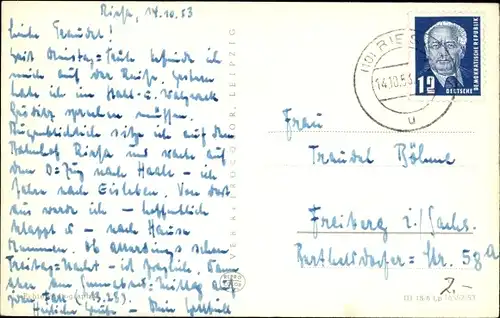 Riesa, 14.10.53
Liebe Traudel!
Seit Dienstag-Früh befinde ich
mich auf der Reise. Gestern
habe ich im Stahl- u. Walzwerk
Gröditz sprechen müssen.
Augenblicklich sitze ich auf dem
Bahnhof Riesa und warte auf
den D-Zug nach Halle - ich
fahre nach Eisleben. Von dort
aus werde ich - hoffentlich
klappt es - nach Hause
kommen. Ob allerdings schon
Freitag-Nacht - ist fraglich. Dann
aber am Sonnabend-Mittag auf
jeden Fall 13.28).
Herzliche Grüße - Dein
VEB LEIPZIG
(10) RIESA
14.10.53
u
12
DEUTSCHE
DEMOKRATISCHE REPUBLIK
Frau
Traudel Böhme
Freiberg i./Sachs.
Berthelsdorfer-Str. 58a
2.-
III 18/6 Lp